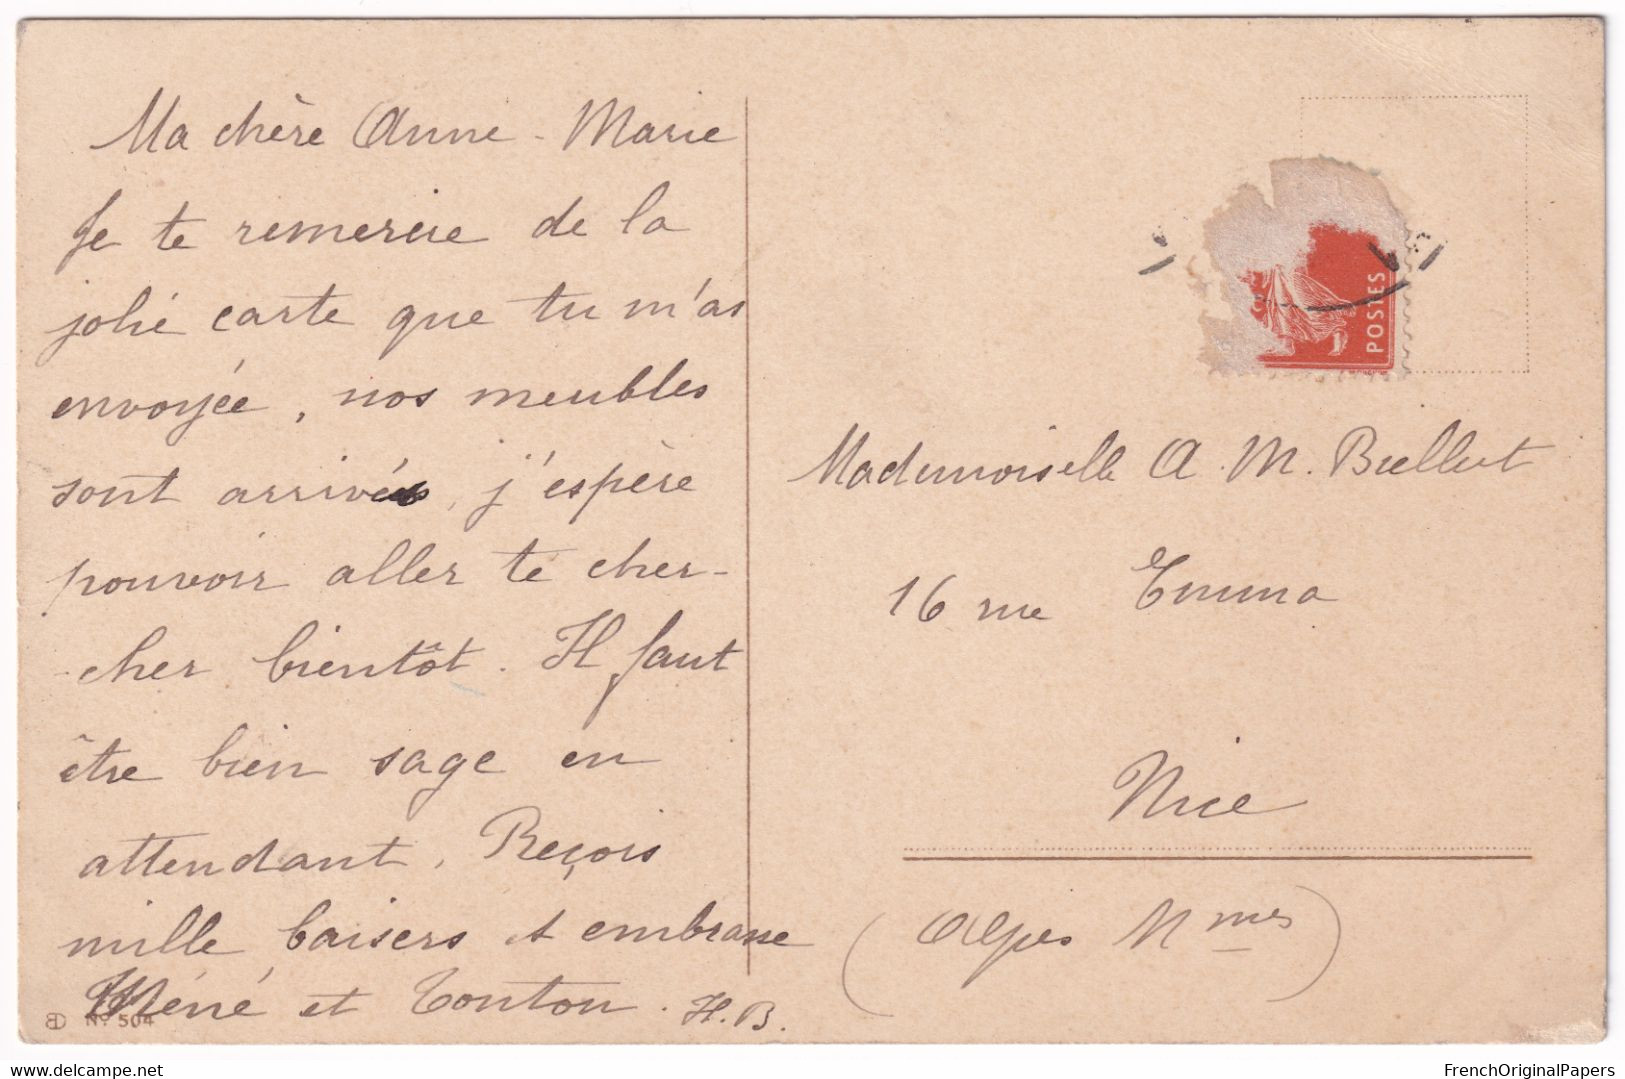 Ma chère Anne-Marie
Je te remercie de la
jolie carte que tu m'as
envoyée, nos meubles
sont arrivés, j'espère
pouvoir aller te cher-
cher bientôt. Il faut
être bien sage en
attendant. Reçois
mille baisers et embrasse
Méné et Tonton. H.B.
BD No 504
POSTES
Mademoiselle A. M. Bellut
16 rue Emma
Nice
(Alpes Mmes)
delcampe.net
FrenchOriginalPapers